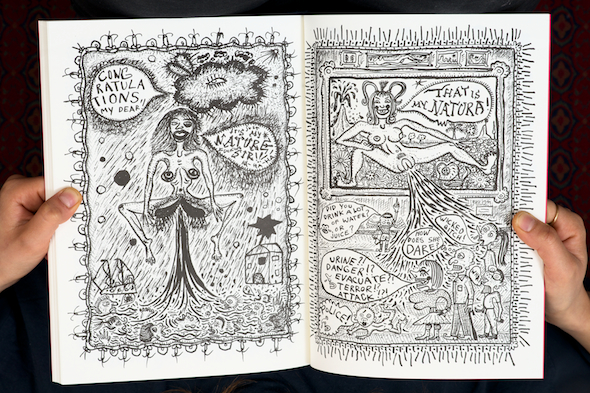 CONG
RATULA
TIONS,
MY DEAR!
IT'S MY
NATURE
SIR!!
THAT IS
MY NATURA!
DID YOU
DRINK A LOT
OF WATER
OR
HOW
DOES SHE
DARE!
URINE?!!?
DANGER!
EVACUATE!!
TERROR!!
ATTACK!
POLICE!